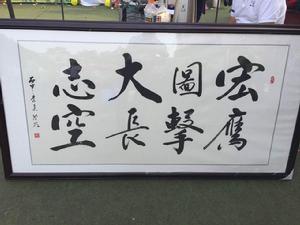 宏圖大志
鷹擊長空
丙申